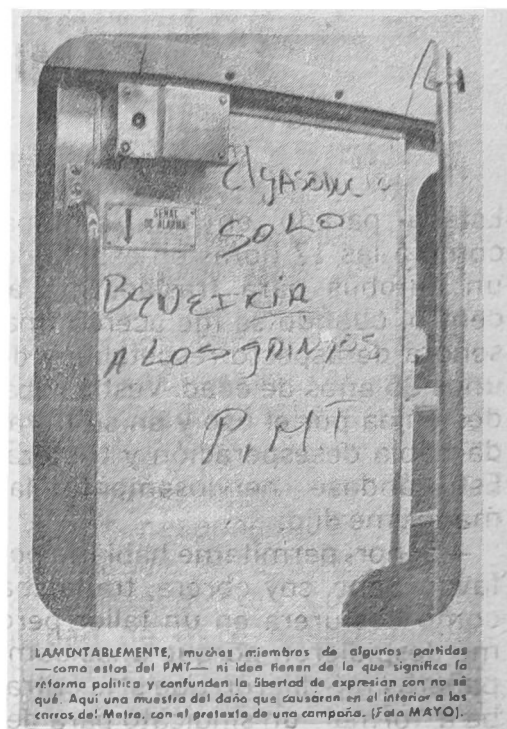 SEÑAL
DE ALARMA
El gASODUCTO
SOLO
BENEFICIA
A LOS gRINgOS
PMT
LAMENTABLEMENTE, muchos miembros de algunos partidos
—como estos del PMT— ni idea tienen de lo que significa la
reforma política y confunden la libertad de expresión con no sé
qué. Aquí una muestra del daño que causaron en el interior a los
carros del Metro, con el pretexto de una campaña. (Foto MAYO).